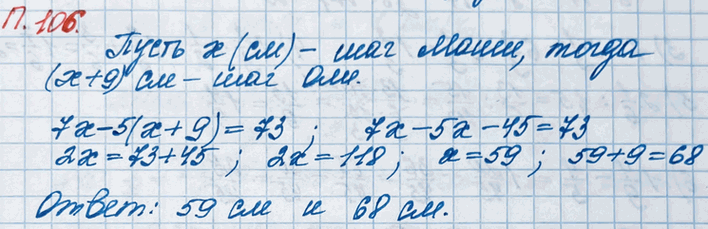 П. 106.
Пусть x (см) – шаг Маши, тогда
(x+9) см – шаг Оли.
7x–5(x+9)=73 ; 7x–5x–45=73
2x=73+45 ; 2x=118 ; x=59 ; 59+9=68
Ответ: 59 см и 68 см.